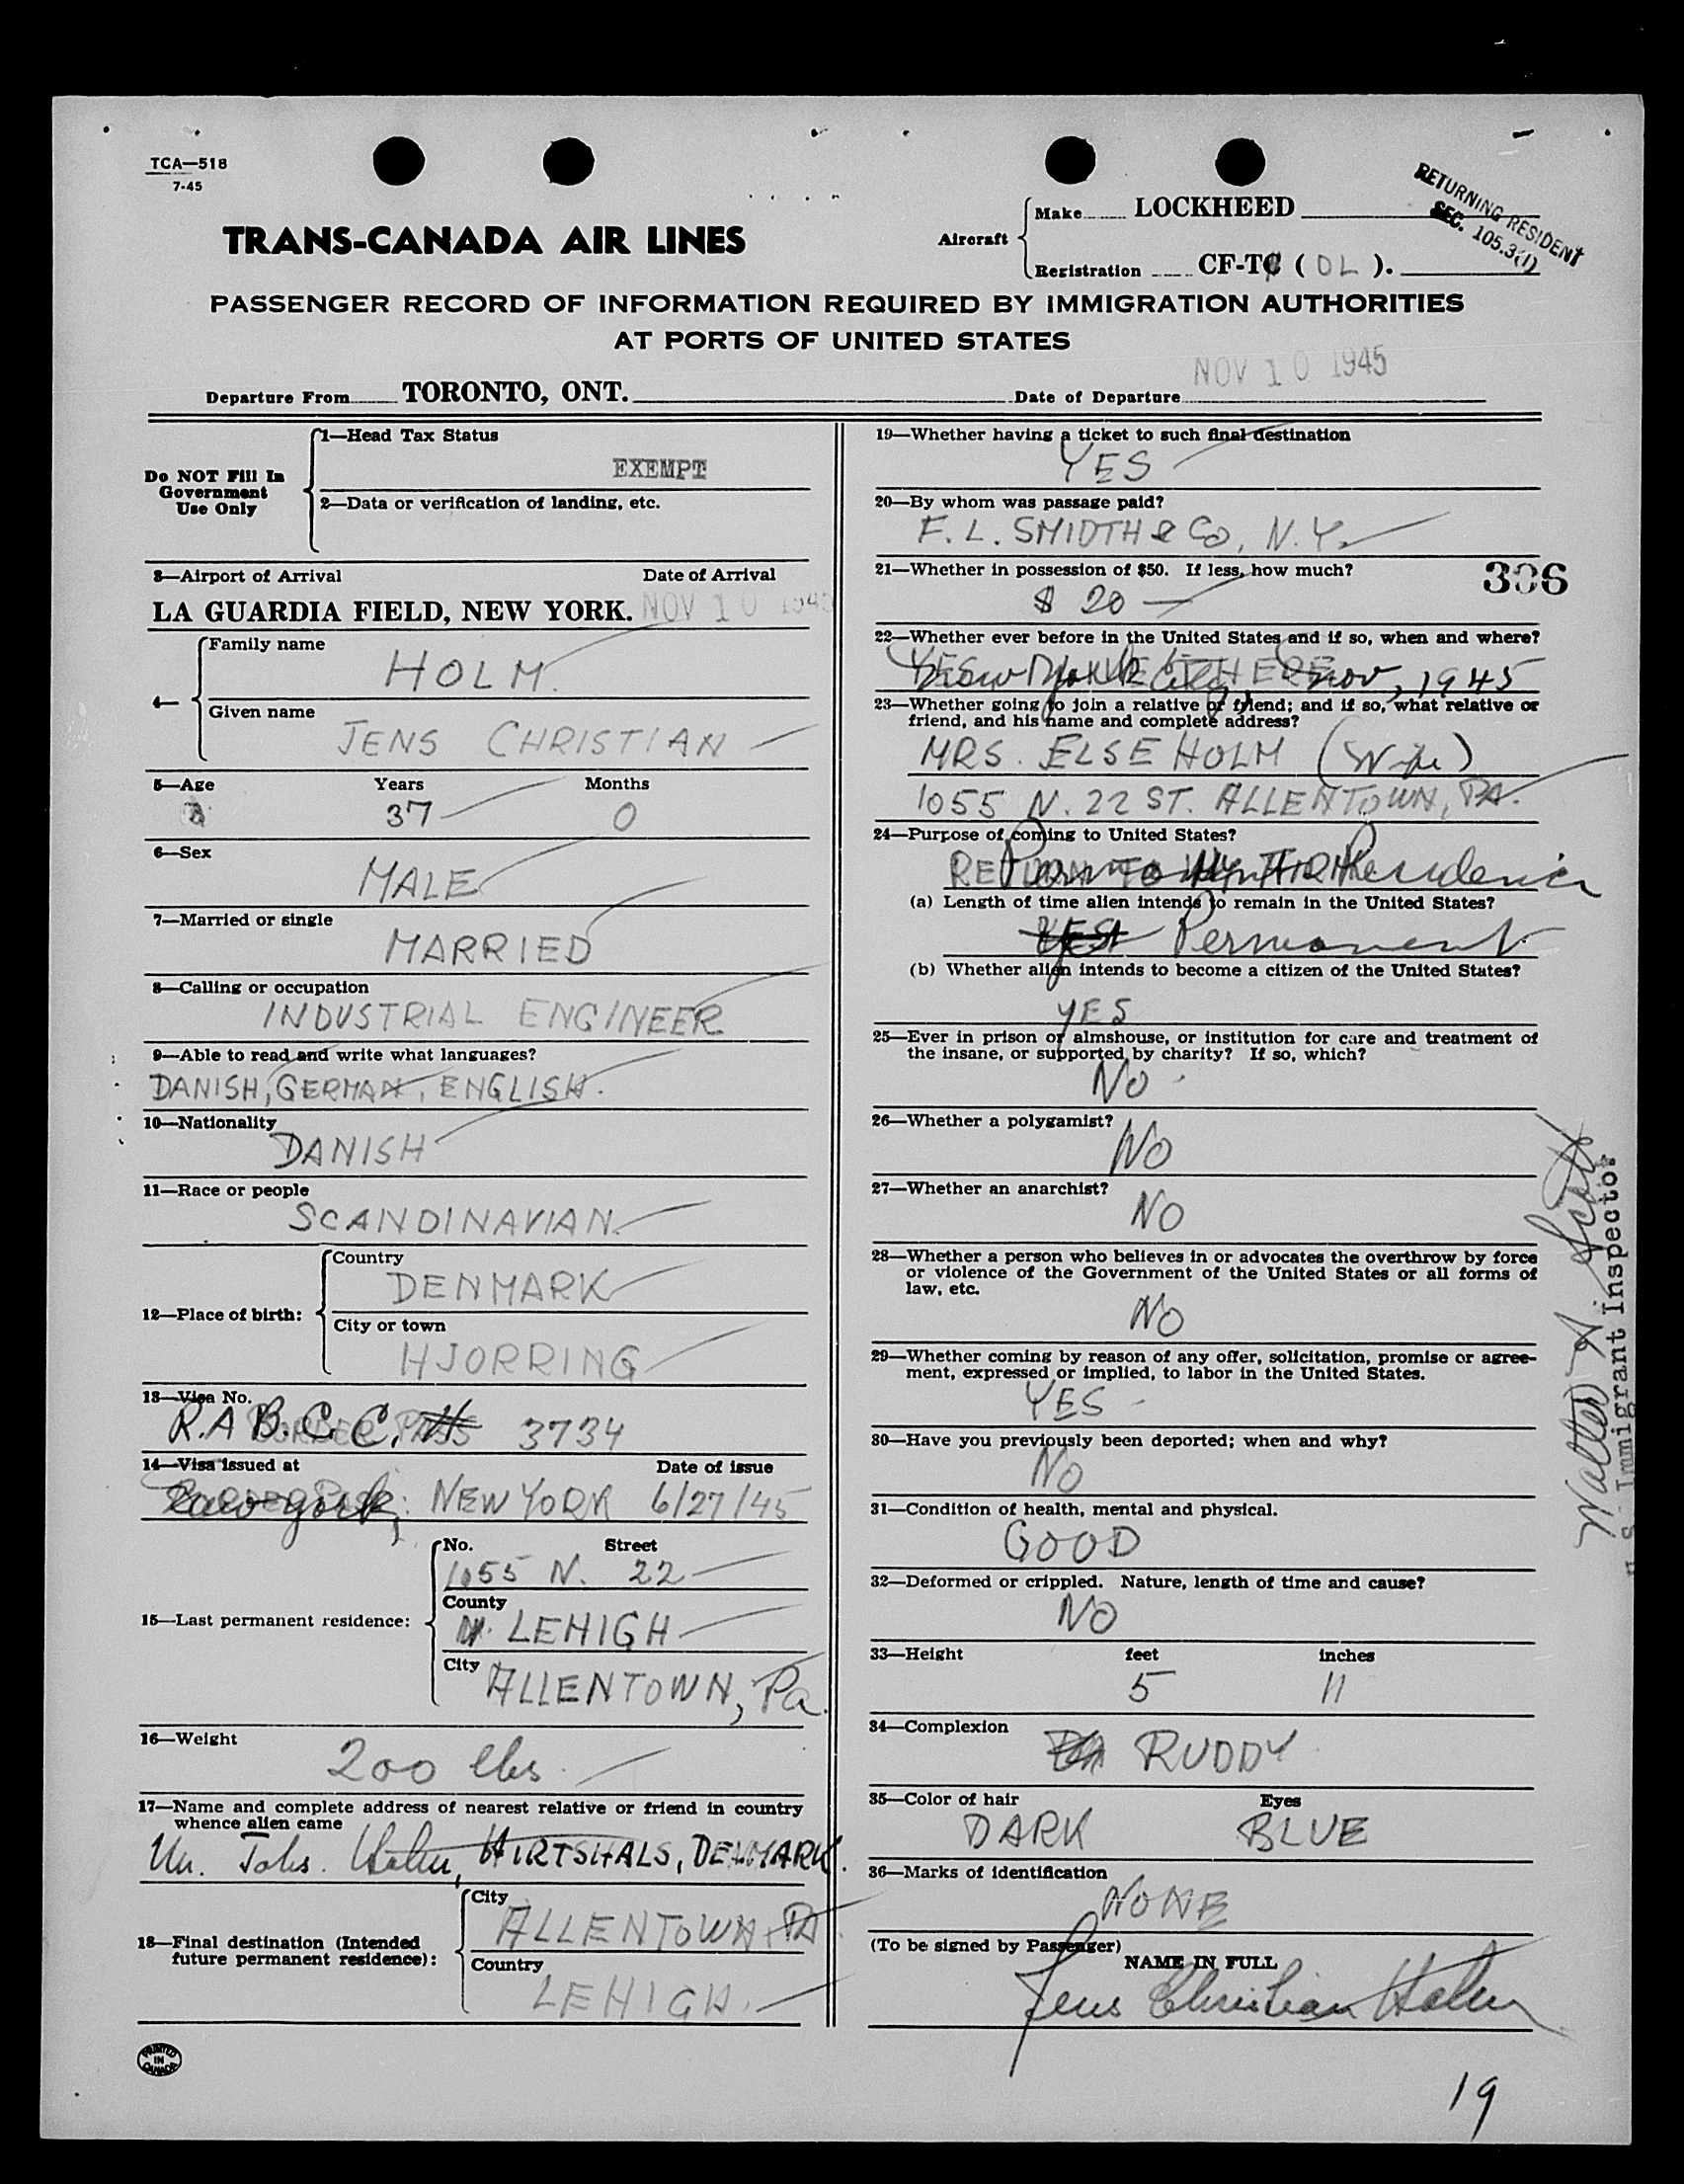 TCA—518
7-45
TRANS-CANADA AIR LINES
Aircraft
Make LOCKHEED
Registration CF-TC ( DL ).
RETURNING RESIDENT
SEC. 105.3(1)
PASSENGER RECORD OF INFORMATION REQUIRED BY IMMIGRATION AUTHORITIES
AT PORTS OF UNITED STATES
Departure From TORONTO, ONT. Date of Departure NOV 10 1945
Do NOT Fill In
Government
Use Only
1—Head Tax Status
EXEMPT
2—Data or verification of landing, etc.
3—Airport of Arrival Date of Arrival
LA GUARDIA FIELD, NEW YORK. NOV 10 1945
4—
Family name
HOLM.
Given name
JENS CHRISTIAN
5—Age Years Months
37 0
6—Sex
MALE
7—Married or single
MARRIED
8—Calling or occupation
INDUSTRIAL ENGINEER
9—Able to read and write what languages?
DANISH, GERMAN, ENGLISH.
10—Nationality
DANISH
11—Race or people
SCANDINAVIAN.
12—Place of birth:
Country
DENMARK
City or town
HJORRING
13—Visa No.
R.A B.C.C. # BORDER PASS 3734
14—Visa issued at Date of issue
New York, NEW YORK 6/27/45
15—Last permanent residence:
No. Street
1055 N. 22
County
LEHIGH
City
ALLENTOWN, Pa.
16—Weight
200 lbs.
17—Name and complete address of nearest relative or friend in country
whence alien came
Johs. Holm, HIRTSHALS, DENMARK.
18—Final destination (Intended
future permanent residence):
City
ALLENTOWN, PA
Country
LEHIGH.
PRINTED
IN
CANADA
19—Whether having a ticket to such final destination
YES
20—By whom was passage paid?
F. L. SMIDTH & Co, N.Y.
21—Whether in possession of $50. If less, how much?
$ 20
306
22—Whether ever before in the United States and if so, when and where?
YES New York City Nov, 1945
23—Whether going to join a relative or friend; and if so, what relative or
friend, and his name and complete address?
MRS. ELSE HOLM (Wife)
1055 N. 22 ST. ALLENTOWN, PA.
24—Purpose of coming to United States?
RETURN TO Permanent Residence
(a) Length of time alien intends to remain in the United States?
YES Permanent
(b) Whether alien intends to become a citizen of the United States?
YES
25—Ever in prison or almshouse, or institution for care and treatment of
the insane, or supported by charity? If so, which?
NO
26—Whether a polygamist?
NO
27—Whether an anarchist?
NO
28—Whether a person who believes in or advocates the overthrow by force
or violence of the Government of the United States or all forms of
law, etc.
NO
29—Whether coming by reason of any offer, solicitation, promise or agree-
ment, expressed or implied, to labor in the United States.
YES
30—Have you previously been deported; when and why?
NO
31—Condition of health, mental and physical.
GOOD
32—Deformed or crippled. Nature, length of time and cause?
NO
33—Height feet inches
5 11
34—Complexion
RUDDY
35—Color of hair Eyes
DARK BLUE
36—Marks of identification
NONE
(To be signed by Passenger)
NAME IN FULL
Jens Christian Holm
Walter A Scott
U S Immigrant Inspector
19